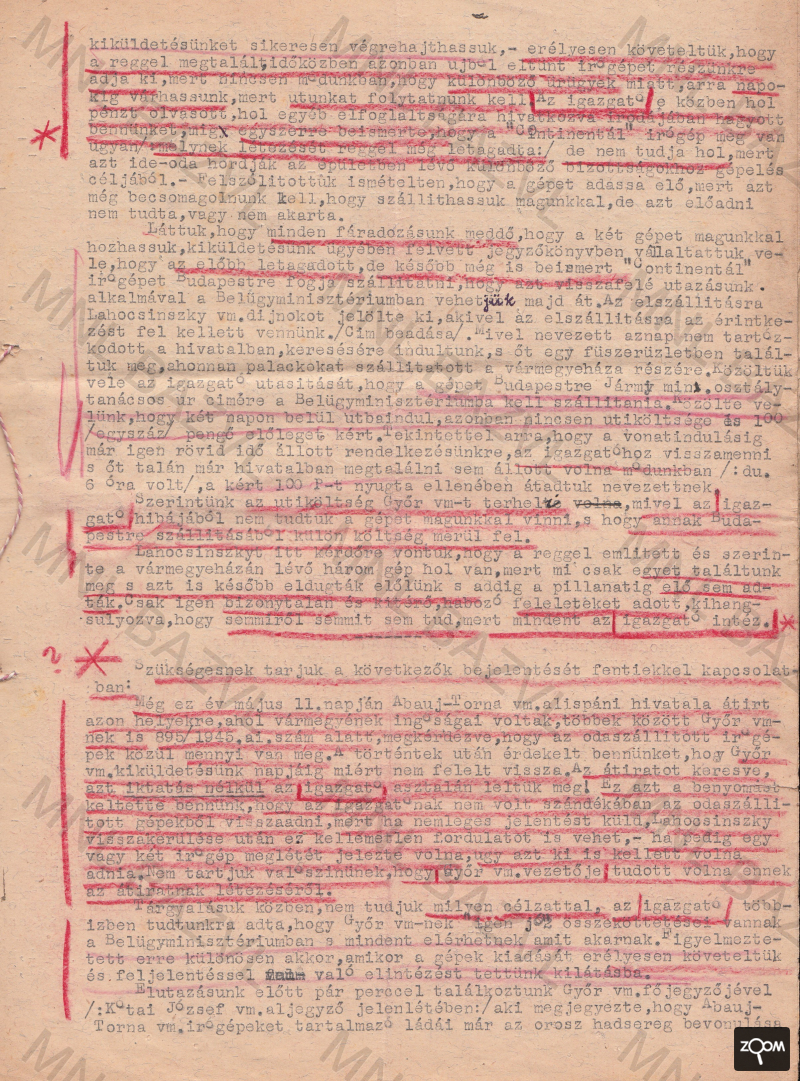 kiküldetésünket sikeresen végrehajthassuk,- erélyesen követeltük,hogy
a reggel megtalált,időközben azonban ujból eltünt irógépet részünkre
adja ki,mert nincsen módunkban,hogy különböző ürügyek miatt,arra napo-
kig várhassunk,mert utunkat folytatnunk kell.Az igazgató e közben hol
pénzt olvasott,hol egyéb elfoglaltságára hivatkozva irodájában hagyott
bennünket,mig egyszerre beismerte,hogy a "Continentál" irógép meg van
ugyan/ melynek létezését reggel még letagadta:/ de nem tudja hol,mert
azt ide-oda hordják az épületben lévő különböző bizottságokhoz gépelés
céljából.- Felszólitottük ismételten,hogy a gépet adassa elő,mert azt
még becsomagolnunk kell,hogy szállithassuk magunkkal,de azt előadni
nem tudta,vagy nem akarta.
Láttuk,hogy minden fáradozásunk meddő,hogy a két gépet magunkkal
hozhassuk,kiküldetésünk ügyében felvett jegyzőkönyvben vállaltattuk ve-
le,hogy az előbb letagadott,de később még is beismert "Continentál"
irógépet Budapestre fogja szállitatni,hogy azt visszafelé utazásunk.
alkalmával a Belügyminisztériumban vehetjük majd át.Az elszállitásra
Lahocsinszky vm.dijnokot jelölte ki,akivel az elszállitásra az érintke-
zést fel kellett vennünk./Cim beadása/.Mivel nevezett aznap nem tartóz-
kodott a hivatalban,keresésére indultunk,s őt egy füszerüzletben talál-
tuk meg,ahonnan palackokat szállitatott a vármegyeháza részére.Közöltük
vele az igazgató utasitását,hogy a gépet Budapestre Jármy min. osztály-
tanácsos ur cimére a Belügyminisztériumba kell szállitania.Közölte ve-
lünk,hogy két napon belül utbaindul,azonban nincsen utiköltsége és 100
/egyszáz/ pengő előleget kért.Tekintettel arra,hogy a vonatindulásig
már igen rövid idő állott rendelkezésünkre,az igazgatóhoz visszamenni
s őt talán már hivatalban megtalálni sem állott volna módunkban /:du.
6 óra volt/,a kért 100 P-t nyugta ellenében átadtuk nevezettnek.
Szerintünk az utiköltség Győr vm-t terhelné volna,mivel az igaz-
gató hibájából nem tudtuk a gépet magunkkal vinni,s hogy annak Buda-
pestre szállitásából külön költség merül fel.
Lahocsinszkyt itt kérdőre vontuk,hogy a reggel emlitett és szerin-
te a vármegyeházán lévő három gép hol van,mert mi csak egyet találtunk
meg s azt is később eldugták előlünk s addig a pillanatig elő sem ad-
ták.Csak igen bizonytalan és kitérő,habozó feleleteket adott,kihang-
sulyozva,hogy semmiről semmit sem tud,mert mindent az igazgató intéz.
Szükségesnek tarjuk a következők bejelentését fentiekkel kapcsolat-
ban:
Még ez év május 11.napján Abauj-Torna vm.alispáni hivatala átirt
azon helyekre,ahol vármegyének ingóságai voltak,többek között Győr vm-
nek is 895/1945.ai.szám alatt,megkérdezve,hogy az odaszállitott irógé-
pek közül mennyi van meg.A történtek után érdekelt bennünket,hogy Győr
vm.kiküldetésünk napjáig miért nem felelt vissza.Az átiratot keresve,
azt iktatás nélkül az igazgató asztalán leltük meg! Ez azt a benyomást
keltette bennünk,hogy az igazgatónak nem volt szándékában az odaszálli-
tott gépekből visszaadni,mert ha nemleges jelentést küld,Lahocsinszky
visszakerülése után ez kellemetlen fordulatot is vehet,- ha pedig egy
vagy két irógép meglétét jelezte volna,ugy azt ki is kellett volna
adnia.Nem tartjuk valószinünek,hogy Győr vm.vezetője tudott volna ennek
az átiratnak létezéséről.
Tárgyalásuk közben,nem tudjuk milyen célzattal, az igazgató több-
izben tudtunkra adta,hogy Győr vm-nek "igen jó" összeköttetései vannak
a Belügyminisztériumban s mindent elérhetnek amit akarnak.Figyelmezte-
tett erre különösen akkor,amikor a gépek kiadását erélyesen követeltük
és feljelentéssel való elintézést tettünk kilátásba.
Elutazásunk előtt pár perccel találkoztunk Győr vm.főjegyzőjével
/:Kótai József vm.aljegyző jelenlétében:/aki megjegyezte,hogy Abauj-
Torna vm.irógépeket tartalmazó ládái már az orosz hadsereg bevonulása